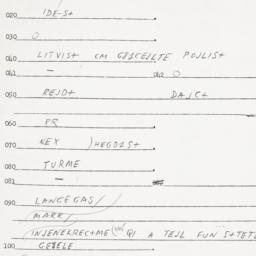 020 IDE-S+
030 O
040 LITVIS+ CM GƏSCEJLTE POJLIS+
041 — 042 O
050 REJD+ DAJC+
060 PR
070 NEX )HEGDZS+
080 TURME
081 —
090 LANGEGAS/
MARK/
INJENERREC+ME A TEJL FUN S+TET
100 GETELE